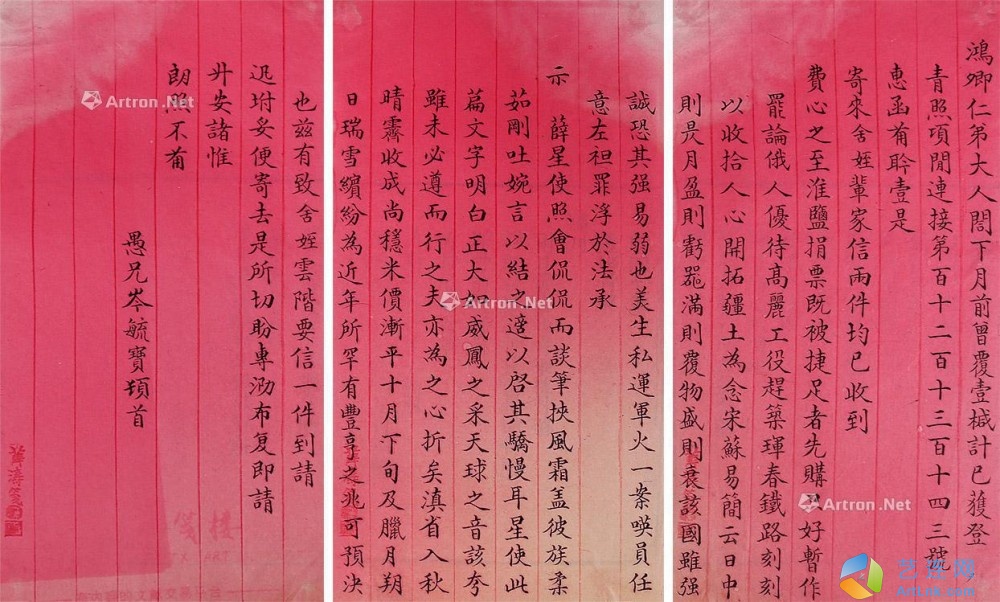 鴻卿仁第大人閤下月前曾覆壹椷計已獲登
青照項閒連接第百十二百十三百十四三號
惠函莆聆壹是
寄來舍姪輩家信兩件均已收到
費心之至淮鹽捐票既被捷足者先購好暫作
罷論俄人優待高麗工役趕築琿春鐵路刻刻
以收拾人心開拓疆土為念宋蘇易簡云日中
則昃月盈則虧器滿則覆物盛則衰該國雖强
誠恐其强易弱也美生私運軍火一案唤員任
意左袒罪浮於法承
示薛星使照會侃侃而談筆挾風霜盖彼族柔
茹剛吐婉言以結之適以啓其驕慢耳星使此
篇文字明白正大如威鳳之采天球之音該夸
雖未必遵而行之夫亦為之心折矣滇省入秋
晴霽收成尚穩米價漸平十月下旬及臘月朔
日瑞雪繽紛為近年所罕有豐享之兆可預決
也兹有致舍姪雲階要信一件到請
迅坿妥便寄去是所切盼專泐布复即請
升安諸惟
朗照不莆
愚兄岑毓寶頓首
Artron.Net
Artron.Net
Artron.Net
艺狂网